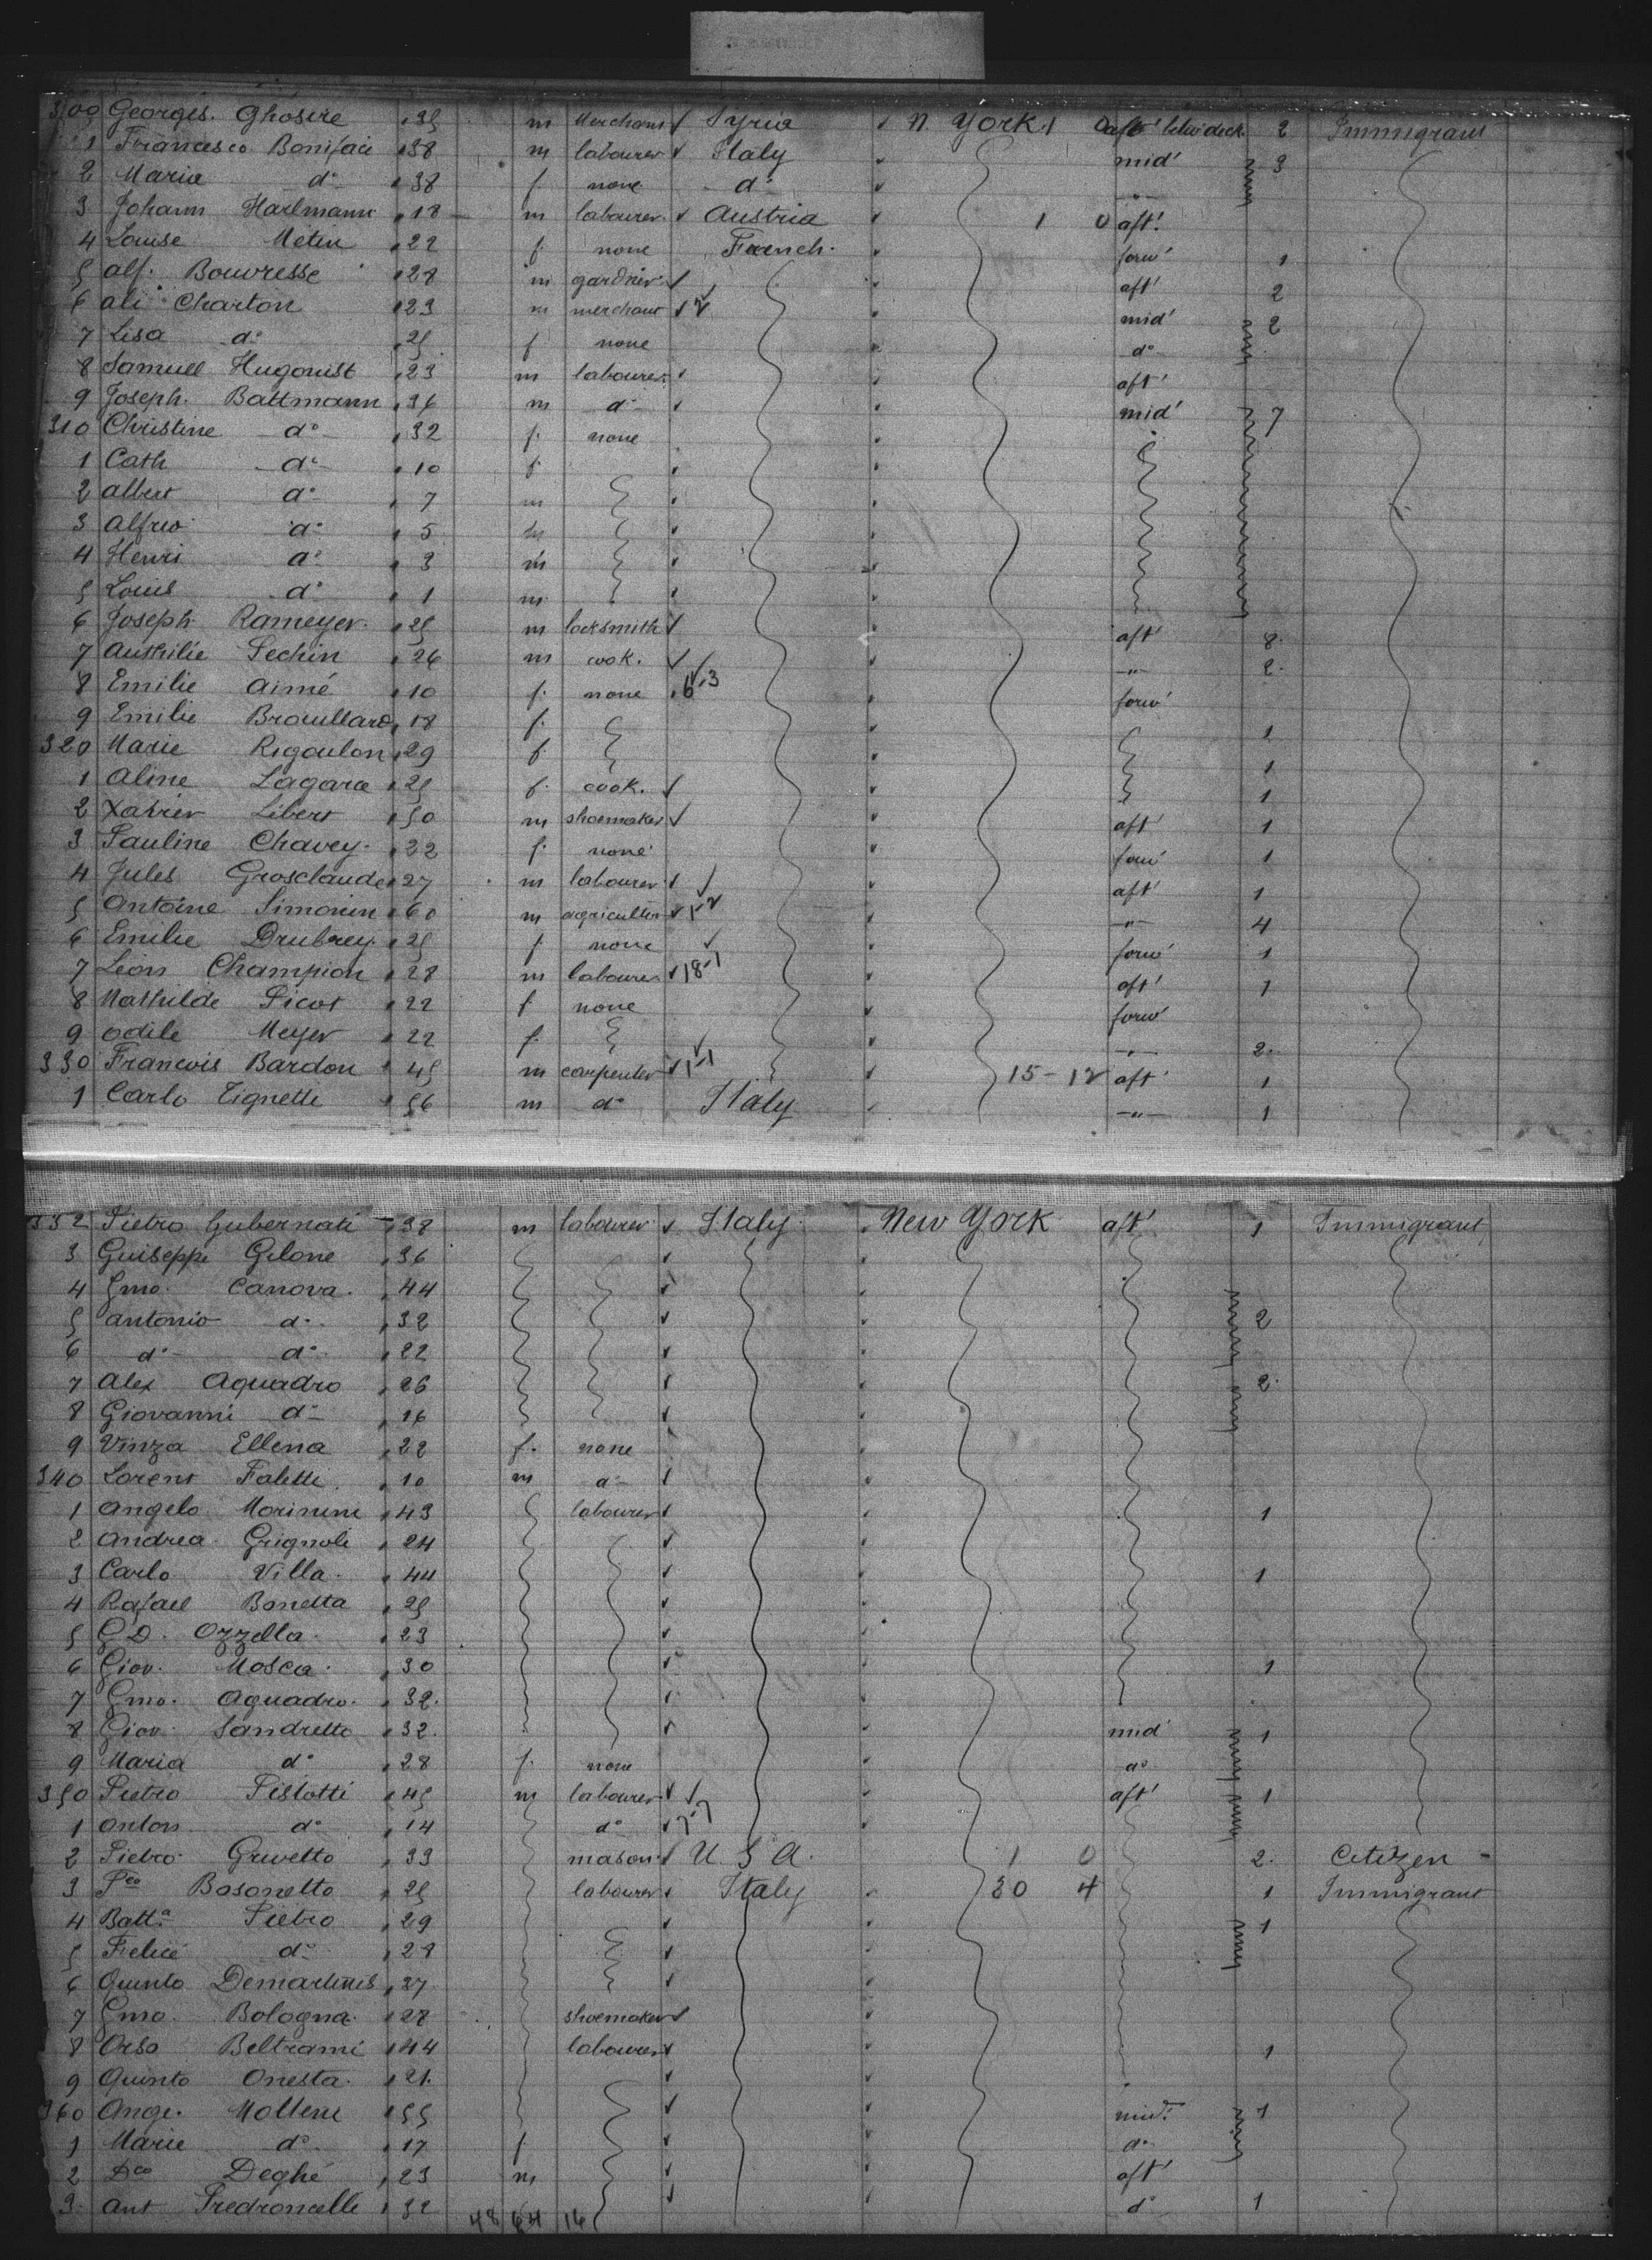 300 Georges. Ghosire 35 m Merchant Syria N. York 1 0 aft' betw deck 2 Immigrant
1 Francesco Boniface 38 m labourer Italy mid' 3
2 Maria do 38 f. none do "
3 Johann Harlmann 18 m labourer Austria 1 0 aft'.
4 Louise Metin 22 f. none French. forw' 1
5 alf. Bouvresse 28 m gardner aft' 2
6 ali Charton 23 m merchant 2 mid' 2
7 Lisa do 25 f none do
8 Samuel Hugonist 23 m labourer aft'
9 Joseph. Battmann 36 m do mid' 7
310 Christine do 32 f. none
1 Cath do 10 f.
2 albert do 7 m
3 alfred do 5 m
4 Henri do 3 m
5 Louis do 1 m
6 Joseph Rameyer 25 m locksmith aft' 2.
7 Authilie Pechin 26 m cook. " 2.
8 Emilie aimé 10 f. none 6 3 forw'
9 Emilie Brouillard 18 f. 1
320 Marie Rigoulon 29 f. 1
1 Aline Lagara 25 f. cook. 1
2 Xavier Libert 50 m shoemaker aft' 1
3 Pauline Chavey. 22 f. none forw' 1
4 Jules Grosclaude 27 m labourer aft' 1
5 Antoine Simonin 60 m agricultor 1-2 " 4
6 Emilie Drubrey. 25 f. none forw' 1
7 Leon Champion 28 m labourer 18-1 aft' 1
8 Mathilde Picot 22 f none forw'
9 Odile Meyer 22 f. " 2.
330 Francois Bardon 45 m carpenter 1-1 15-12 aft' 1
1 Carlo Tignetti 56 m do Italy " 1
332 Pietro Gubernati 38 m labourer Italy New York aft' 1 Immigrant
3 Guiseppe Gilone 36
4 Gmo. Canova. 44
5 antonio do 32 2
6 do do 22
7 Alex Aquadro 26 2.
8 Giovanni do 16
9 Vinza Ellena 22 f. none
340 Lorent Faletti 10 m do
1 Angelo Morinini 43 labourer 1
2 Andrea Grignoli 24
3 Carlo Villa. 44 1
4 Rafael Bonetta 25
5 G.D. Ozzella 23
6 Giov. Mosca. 30 1
7 Gmo. Aquadro. 32.
8 Giov. Sandretto 32. mid' 1
9 Maria do 28 f. none do
350 Pietro Pistotti 45 m labourer aft' 1
1 Anton do 14 do 7-7
2 Pietro Grivetto 33 mason U.S.A. 1 0 2. Citizen
3 Fco Bosonetto 25 labourer Italy 30 4 1 Immigrant
4 Batta Pietro 29 1
5 Felice do 28
6 Quinto Demartinis 27
7 Gmo. Bologna. 28 shoemaker
8 Orso Beltrami 44 labourer 1
9 Quinto Onesta. 21.
360 Ange. Molteni 55 mid' 1
1 Marie do 17 f do
2 Dco Deghé 23 m aft'
3. Ant Predroncelli 32 do 1
48 64 16